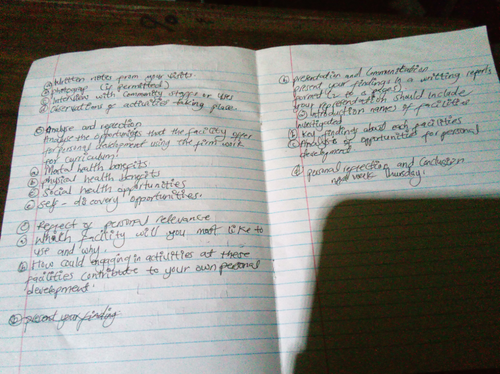 (a) Written notes from your visits
(b) Photograph (if permitted)
(c) Interviews with Community or uses
(d) observations of activities taking place.
Analyse and reflection
Analyse the opportunities that the facility offer
for personal development using the frame work
for curriculum:
(a) Mental health benefits.
(b) physical health benefits
(c) social health opportunities
(d) self - discovery opportunities.
Reflect of personal relevance
(a) which facility will you most like to
use and why.
(b) How could engaging in activities at these
facilities contribute to your own personal
development.
present your finding
(b) presentation and Communication
present your findings in a writting report
format
Your presentation should include
(a) introduction names of facilities
investigated
key finding about each facilities
Analysis of opportunities for personal
development
personal reflection and conclusion
next week thursday.